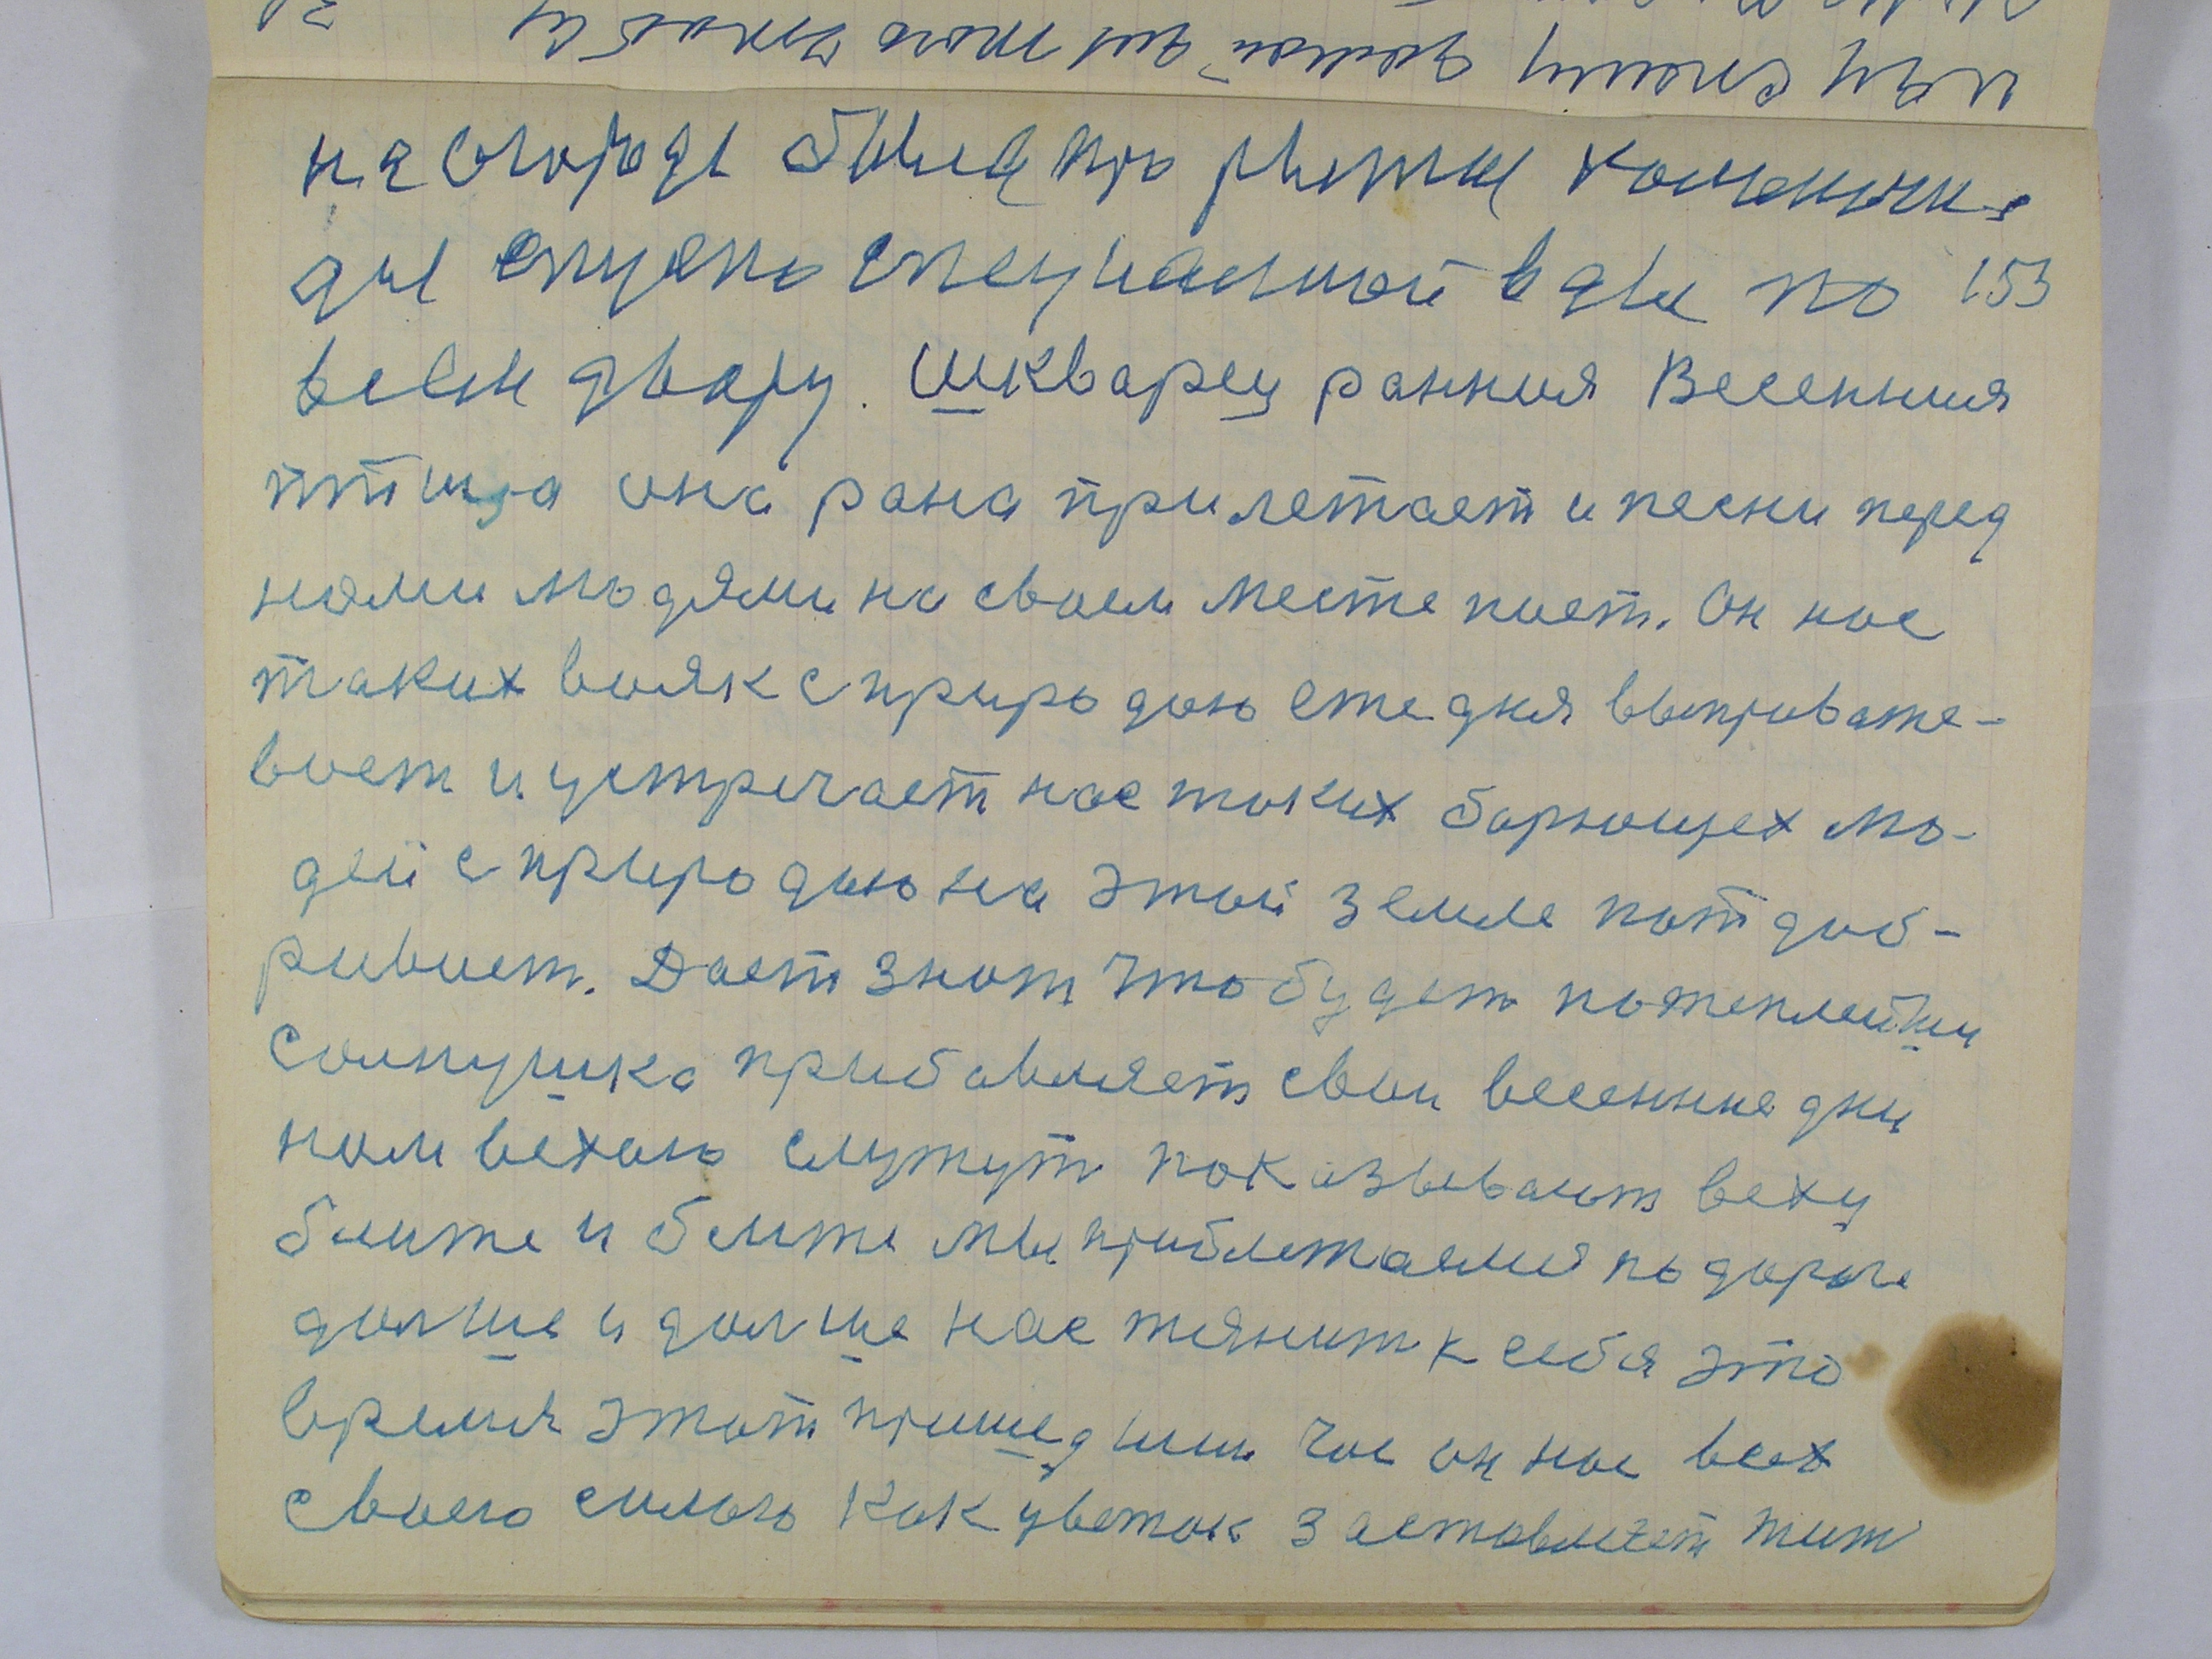 на огороде была про рытая
для спуско специальной воды по 153
всем двору. Шкварец ранняя Весенния
птица она рана прилетает и песни перед
нами людями на своем месте поет. Он нас
таких вояк с природою ежедня выпроваже-
вает и устречает нас таких борющех лю-
дей с природою на этой земле пот доб-
ривает. Дает знат что будет
солнушка прибавляет свои весенние дни
нам вехою служут показывают веху
ближе и ближе мы приближаемся по дороге
дольше и дольше нас тянит к себя это
время этот пришедший час он нас всех
своею силою как цветок заставляет жит